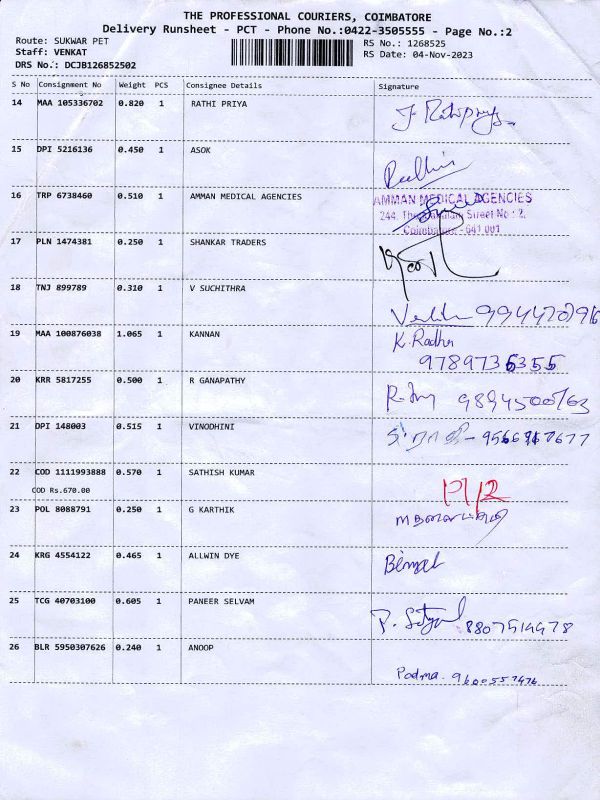 THE PROFESSIONAL COURIERS, COIMBATORE
Delivery Runsheet - PCT - Phone No.:0422-3505555 - Page No.:2
Route: SUKWAR PET RS No.: 1268525
Staff: VENKAT RS Date: 04-Nov-2023
DRS No.: DCJB126852502
S No Consignment No Weight PCS Consignee Details Signature
14 MAA 105336702 0.820 1 RATHI PRIYA
15 DPI 5216136 0.450 1 ASOK
16 TRP 6738460 0.510 1 AMMAN MEDICAL AGENCIES AMMAN MEDICAL AGENCIES
244, Street No : 2,
Coimbatore - 641 001
17 PLN 1474381 0.250 1 SHANKAR TRADERS
18 TNJ 899789 0.310 1 V SUCHITHRA
19 MAA 100876038 1.065 1 KANNAN K. Radha
20 KRR 5817255 0.500 1 R GANAPATHY
21 DPI 148003 0.515 1 VINODHINI
22 COD 1111993888 0.570 1 SATHISH KUMAR
COD Rs.670.00
23 POL 8088791 0.250 1 G KARTHIK
24 KRG 4554122 0.465 1 ALLWIN DYE
25 TCG 40703100 0.605 1 PANEER SELVAM
26 BLR 5950307626 0.240 1 ANOOP
Padma.